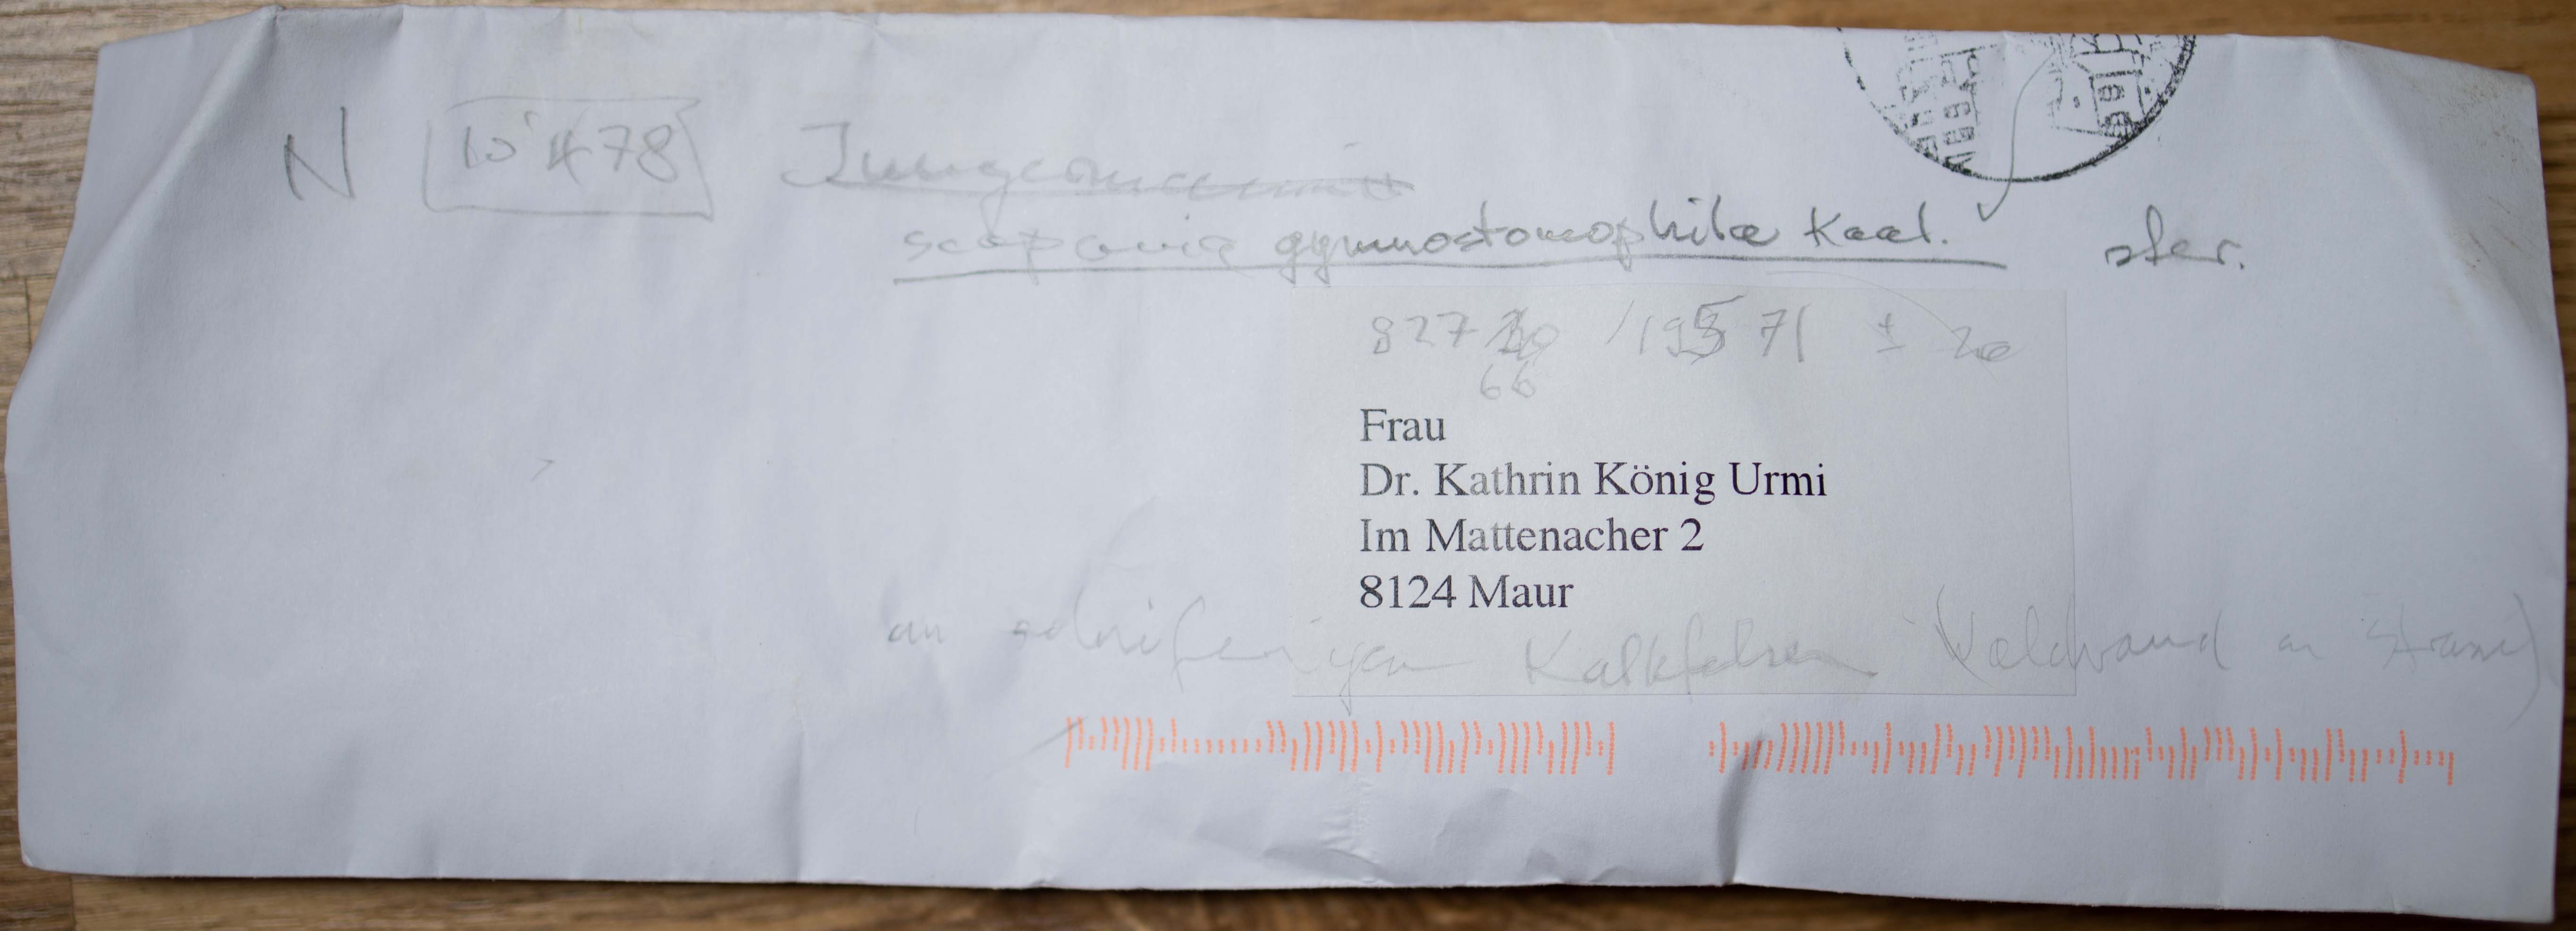 N 10'478 Jungermannia
scapania gymnostomophila Kaal. ster.
827 /195 71 ± 20
66
Frau
Dr. Kathrin König Urmi
Im Mattenacher 2
8124 Maur
an schieferigen Kalkfelsen (Waldrand an Strasse)